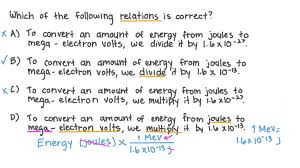 Which of the following relations is correct?
x A) To convert an amount of energy from joules to
mega-electron volts, we divide it by 1.6x10⁻²⁷.
✓ B) To convert an amount of energy from joules to
mega-electron volts, we divide it by 1.6x10⁻¹³.
x C) To convert an amount of energy from joules to
mega-electron volts, we multiply it by 1.6x10⁻²⁷.
D) To convert an amount of energy from joules to
mega-electron volts, we multiply it by 1.6x10⁻¹³.
1 MeV =
1.6x10⁻¹³ J
Energy (joules) x 1 MeV
1.6x10⁻¹³ J